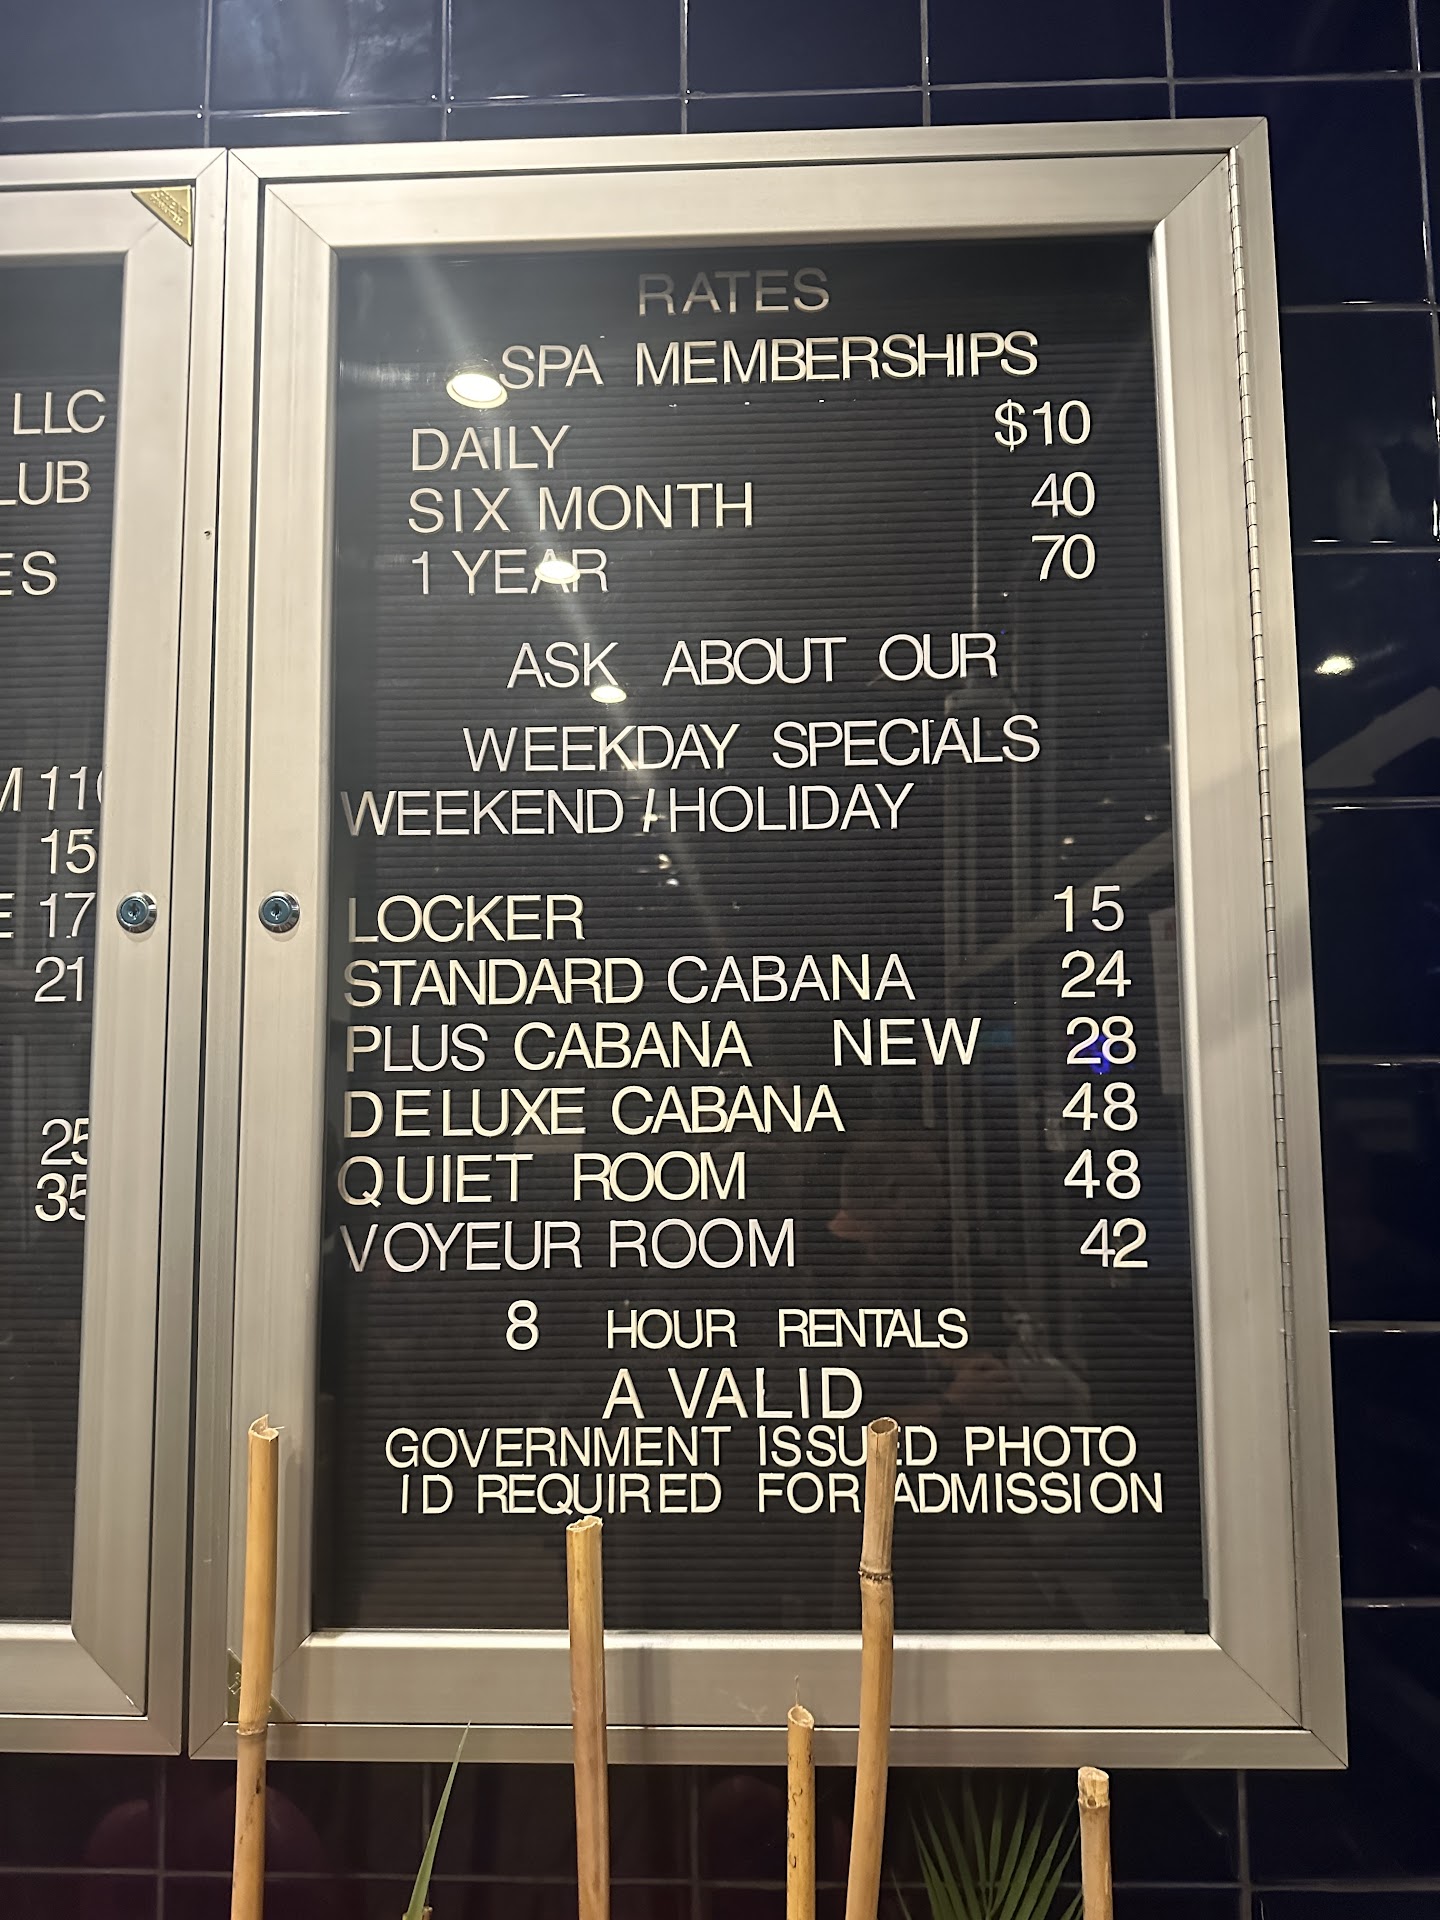 LLC
LUB
ES
M 11
15
E 17
21
25
35
RATES
SPA MEMBERSHIPS
DAILY $10
SIX MONTH 40
1 YEAR 70
ASK ABOUT OUR
WEEKDAY SPECIALS
WEEKEND / HOLIDAY
LOCKER 15
STANDARD CABANA 24
PLUS CABANA NEW 28
DELUXE CABANA 48
QUIET ROOM 48
VOYEUR ROOM 42
8 HOUR RENTALS
A VALID
GOVERNMENT ISSUED PHOTO
ID REQUIRED FOR ADMISSION